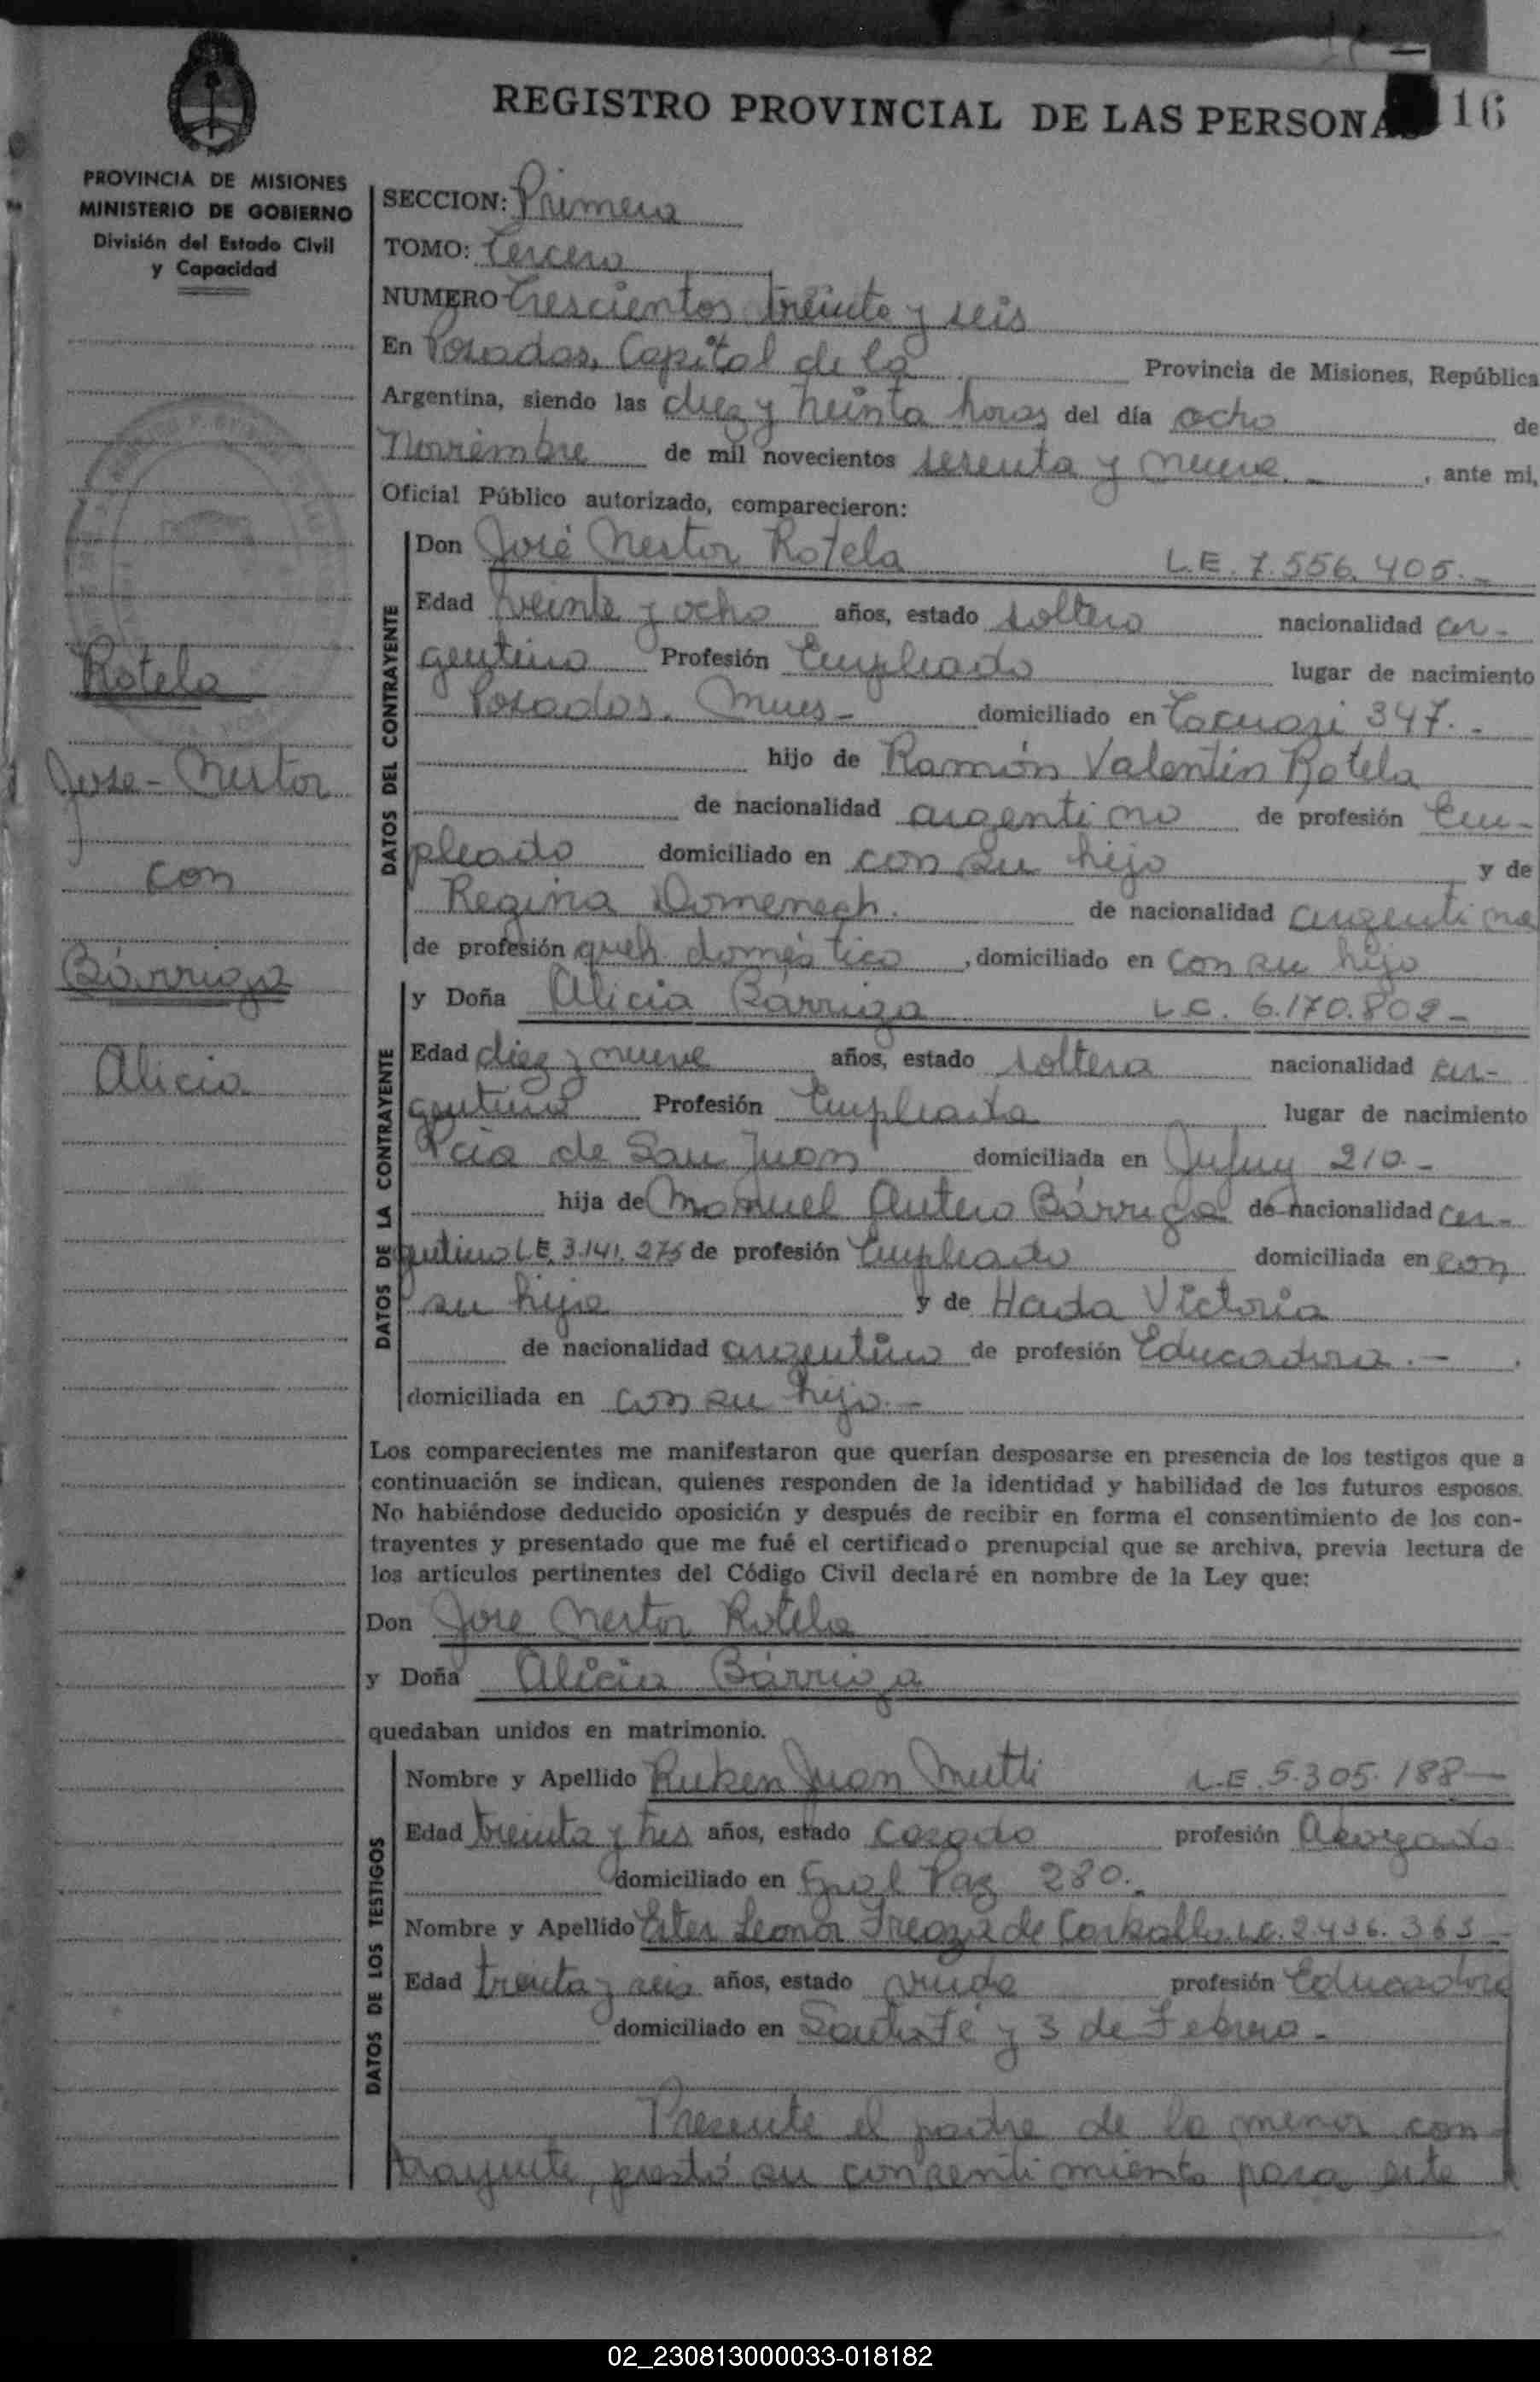 REGISTRO PROVINCIAL DE LAS PERSONAS 16
PROVINCIA DE MISIONES
MINISTERIO DE GOBIERNO
División del Estado Civil
y Capacidad
Rotela
Jose-Nestor
con
Bárriga
Alicia
SECCION: Primera
TOMO: Tercero
NUMERO Trescientos treinta y seis
En Posadas, Capital de la Provincia de Misiones, República
Argentina, siendo las diez y treinta horas del día ocho de
Noviembre de mil novecientos sesenta y nueve. , ante mi,
Oficial Público autorizado, comparecieron:
DATOS DEL CONTRAYENTE
Don José Nestor Rotela L.E. 7.556.405.-
Edad veinte y ocho años, estado soltero nacionalidad ar-
gentino Profesión Empleado lugar de nacimiento
Posadas. Mnes- domiciliado en Tacuari 347.-
hijo de Ramón Valentín Rotela
de nacionalidad argentino de profesión Em-
pleado domiciliado en con su hijo y de
Regina Domenech. de nacionalidad argentina
de profesión queh. doméstico , domiciliado en con su hijo
DATOS DE LA CONTRAYENTE
y Doña Alicia Bárriga L.C. 6.170.802-
Edad diez y nueve años, estado soltera nacionalidad ar-
gentina Profesión Empleada lugar de nacimiento
Pcia de San Juan domiciliada en Jujuy 210.-
hija de Manuel Antero Bárriga de nacionalidad ar-
gentino L.E. 3.141.275 de profesión Empleado domiciliada en con
su hija y de Hada Victoria
de nacionalidad argentina de profesión Educadora.-
domiciliada en con su hija.-
Los comparecientes me manifestaron que querían desposarse en presencia de los testigos que a
continuación se indican, quienes responden de la identidad y habilidad de los futuros esposos.
No habiéndose deducido oposición y después de recibir en forma el consentimiento de los con-
trayentes y presentado que me fué el certificado prenupcial que se archiva, previa lectura de
los artículos pertinentes del Código Civil declaré en nombre de la Ley que:
Don Jose Nestor Rotela
y Doña Alicia Bárriga
quedaban unidos en matrimonio.
DATOS DE LOS TESTIGOS
Nombre y Apellido Ruben Juan Mutti L.E. 5.305.188-
Edad treinta y tres años, estado casado profesión Abogado
domiciliado en Gral Paz 280.-
Nombre y Apellido Ester Leonor de L.C. 2.436.363-
Edad treinta y seis años, estado viuda profesión Educadora
domiciliado en Santa Fé y 3 de Febrero.-
Presente el padre de la menor con-
trayente, prestó su consentimiento para este
02_230813000033-018182